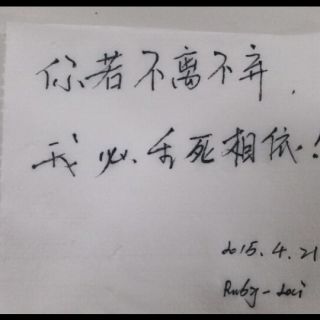 你若不离不弃,
我必生死相依!
2015.4.21
Ruby-